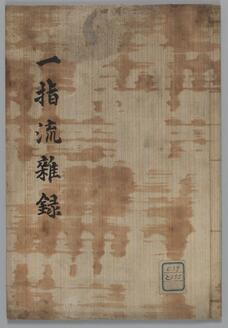 一指流雜錄